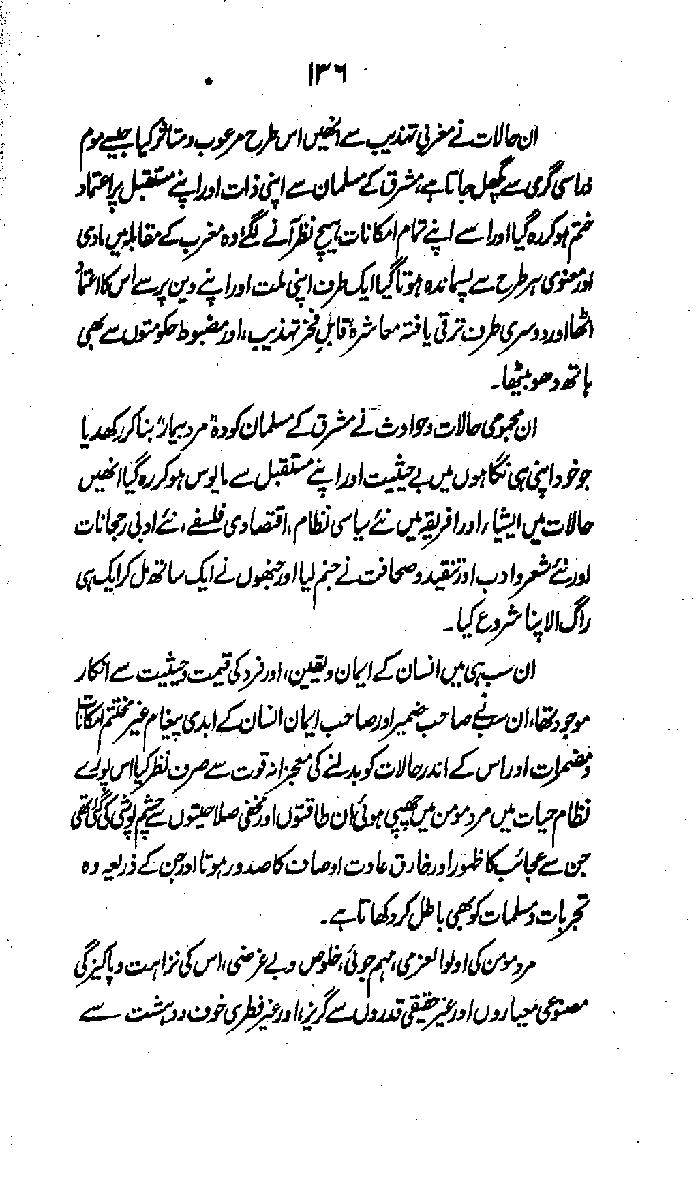 ۱۳۶
ان حالات نے مغربی تہذیب سے انھیں اس طرح مرعوب و متاثر کیا جیسے موم
ذراسی گرمی سے پگھل جاتا ہے، مشرق کے مسلمان سے اپنی ذات اور اپنے مستقبل پر اعتماد
ختم ہو کر رہ گیا اور اسے اپنے تمام امکانات ہیچ نظر آنے لگے وہ مغرب کے مقابلہ میں مادی
اور معنوی ہر طرح سے پسماندہ ہوتا گیا ایک طرف اپنی ملت اور اپنے دین پر سے اس کا اعتماد
اٹھا اور دوسری طرف ترقی یافتہ معاشرہ قابلِ فخر تہذیب، اور مضبوط حکومتوں سے بھی
ہاتھ دھو بیٹھا۔
ان مجموعی حالات و حوادث نے مشرق کے مسلمان کو وہ "مرد بیمار" بنا کر رکھدیا
جو خود اپنی ہی نگاہوں میں بے حیثیت اور اپنے مستقبل سے مایوس ہو کر رہ گیا انھیں
حالات میں ایشیاء، اور افریقہ میں نئے سیاسی نظام، اقتصادی فلسفے، نئے ادبی رجحانات
اور نئے شعر و ادب اور تنقید و صحافت نے جنم لیا اور جنھوں نے ایک ساتھ مل کر ایک ہی
راگ الاپنا شروع کیا۔
ان سب ہی میں انسان کے ایمان و یقین، اور فرد کی قیمت و حیثیت سے انکار
موجود تھا، ان سبنے صاحب ضمیر اور صاحب ایمان انسان کے ابدی پیغام غیر مختتم امکانات
و مضمرات اور اس کے اندر حالات کو بدلنے کی معجزانہ قوت سے صرف نظر کیا اس پورے
نظام حیات میں مرد مومن میں چھپی ہوئی ان طاقتوں اور مخفی صلاحیتوں سے چشم پوشی کی گئی تھی
جن سے عجائب کا ظہور اور خارق عادت اوصاف کا صدور ہوتا اور جن کے ذریعہ وہ
تجربات و مسلمات کو بھی باطل کر دکھاتا ہے۔
مرد مومن کی اولوالعزمی، مہم جوئی، خلوص و بے غرضی، اس کی نزاہت و پاکیزگی
مصنوعی معیاروں اور غیر حقیقی قدروں سے گریز، اور غیر فطری خوف و دہشت سے